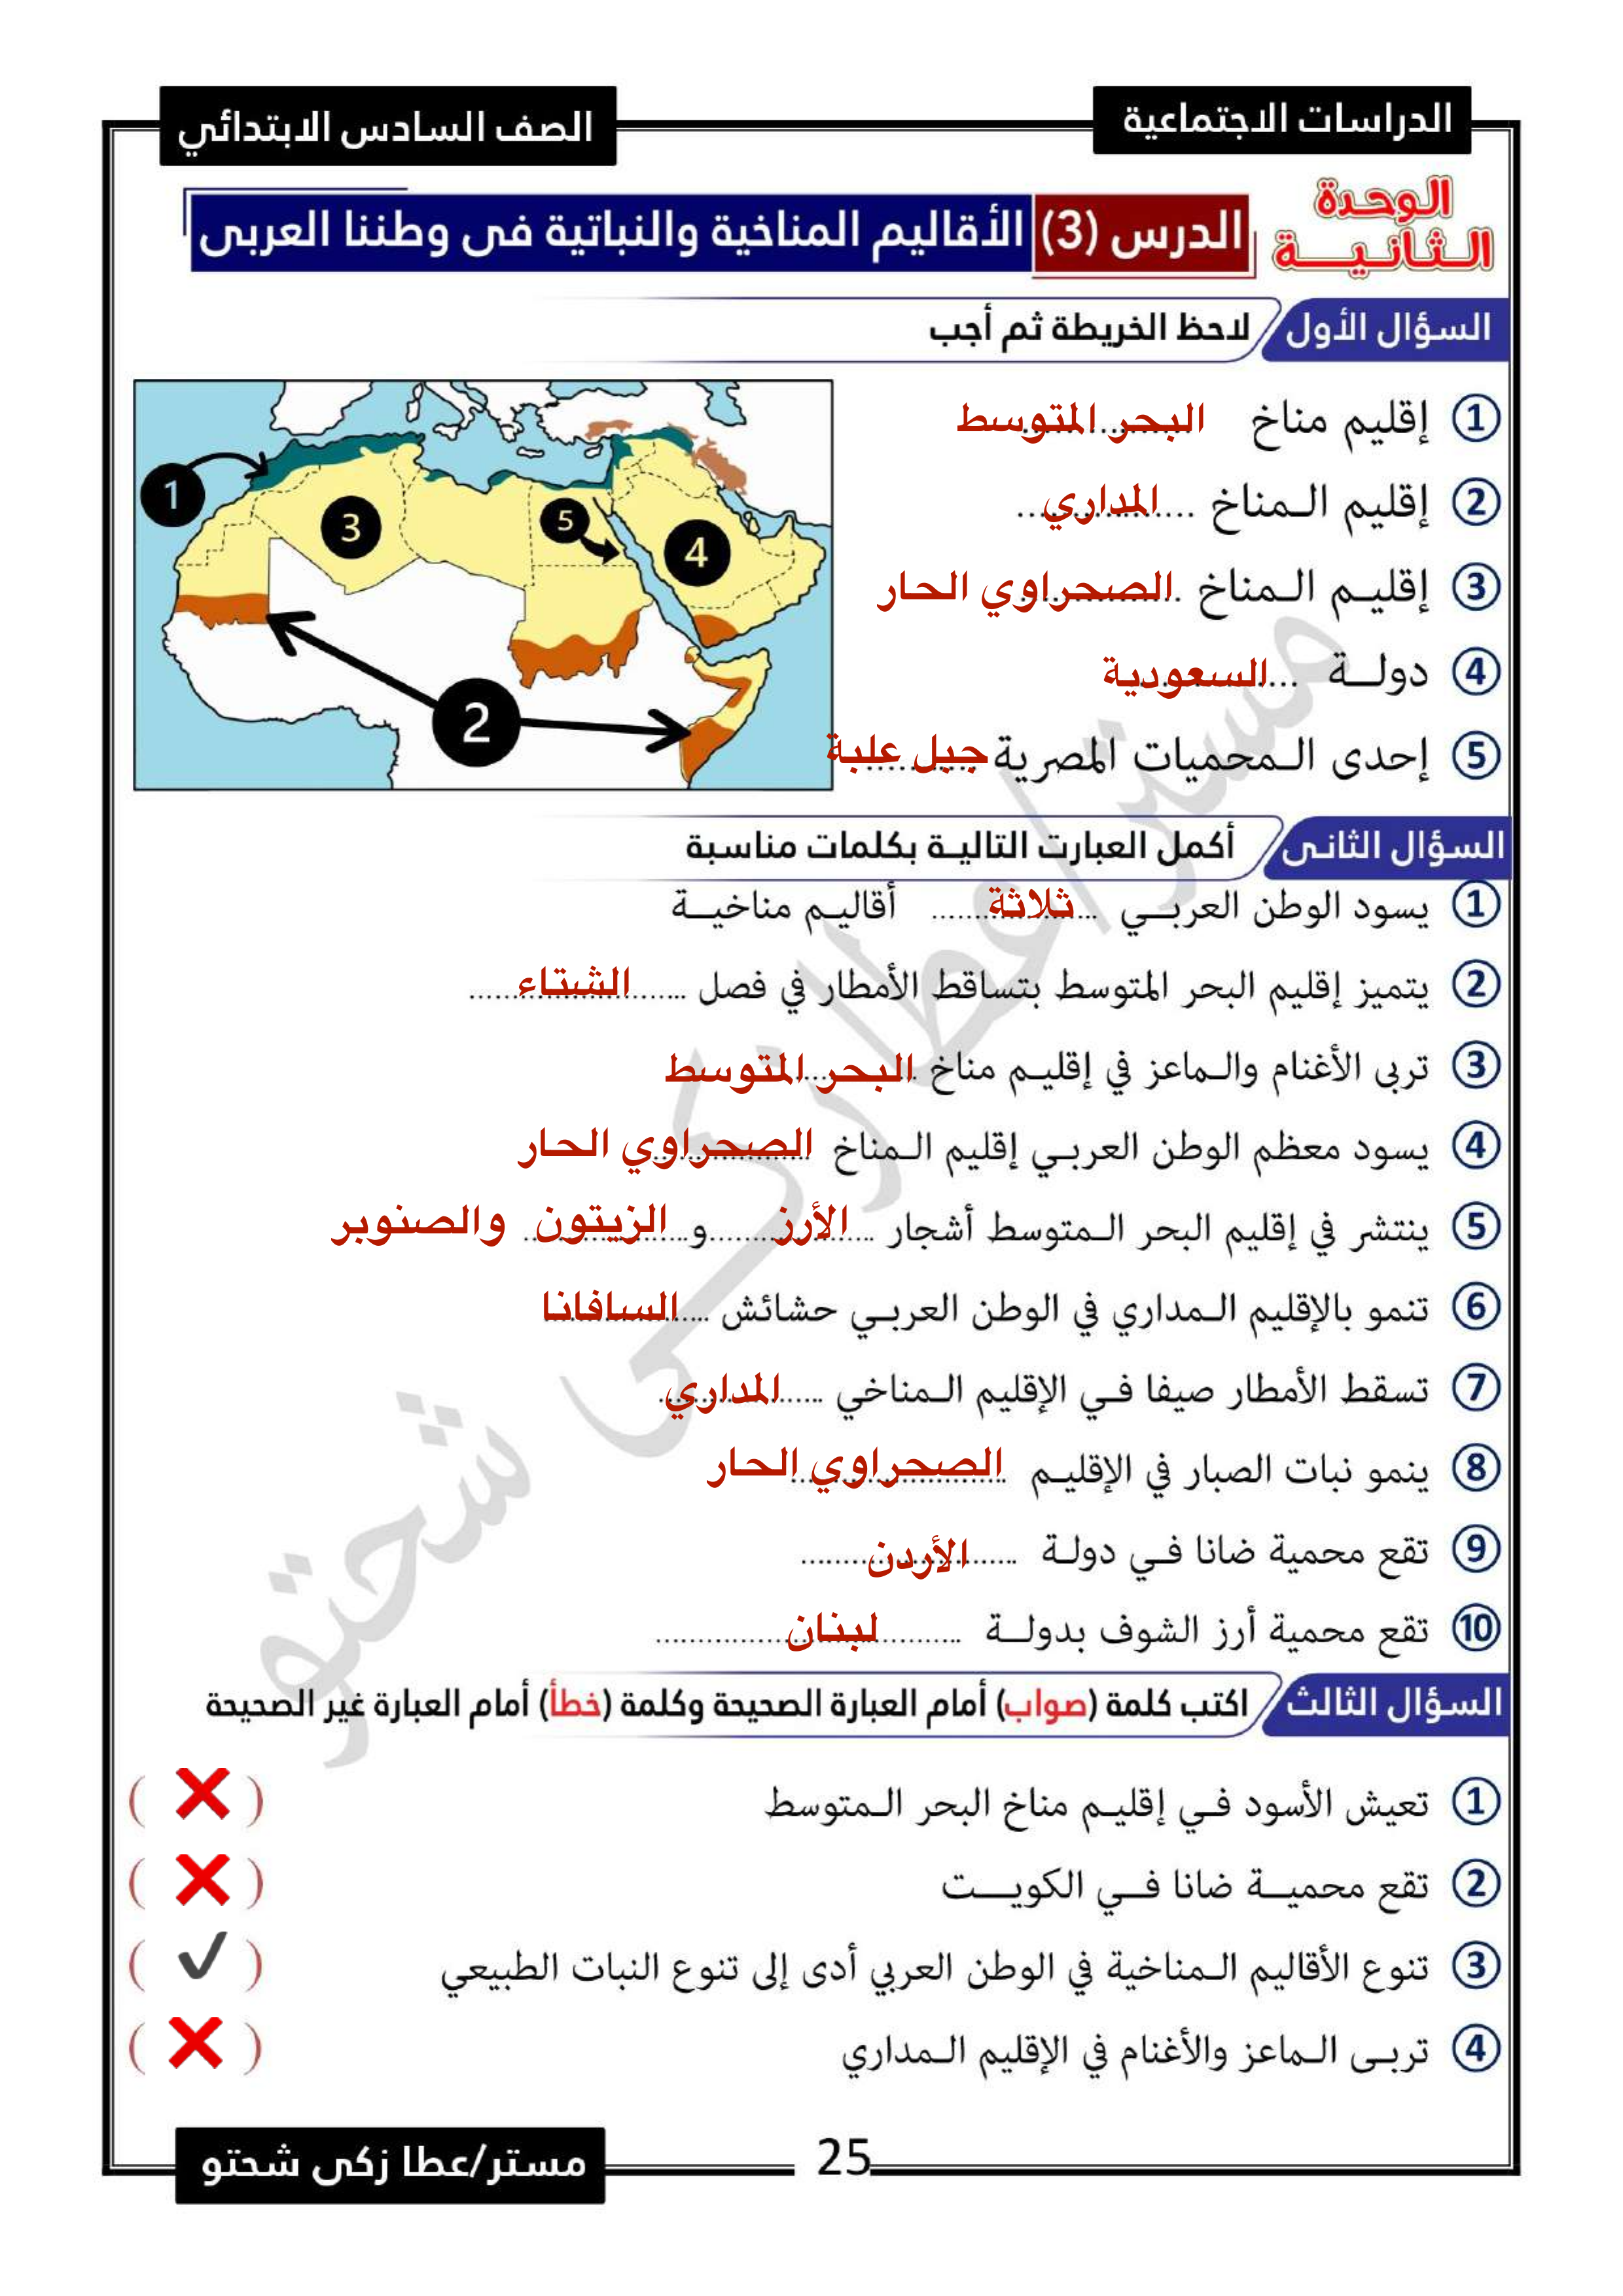 الدراسات الاجتماعية
الصف السادس الابتدائي
الوحدة الثانية
الدرس (3) الأقاليم المناخية والنباتية فى وطننا العربى
السؤال الأول لاحظ الخريطة ثم أجب
1 إقليم مناخ البحر المتوسط
2 إقليم المناخ المداري
3 إقليم المناخ الصحراوي الحار
4 دولة السعودية
5 إحدى المحميات المصرية جبل علبة
1
3
5
4
2
السؤال الثانى أكمل العبارت التالية بكلمات مناسبة
1 يسود الوطن العربي ثلاثة أقاليم مناخية
2 يتميز إقليم البحر المتوسط بتساقط الأمطار في فصل الشتاء
3 تربى الأغنام والماعز في إقليم مناخ البحر المتوسط
4 يسود معظم الوطن العربي إقليم المناخ الصحراوي الحار
5 ينتشر في إقليم البحر المتوسط أشجار الأرز و الزيتون والصنوبر
6 تنمو بالإقليم المداري في الوطن العربي حشائش السافانا
7 تسقط الأمطار صيفا في الإقليم المناخي المداري
8 ينمو نبات الصبار في الإقليم الصحراوي الحار
9 تقع محمية ضانا في دولة الأردن
10 تقع محمية أرز الشوف بدولة لبنان
السؤال الثالث اكتب كلمة (صواب) أمام العبارة الصحيحة وكلمة (خطأ) أمام العبارة غير الصحيحة
1 تعيش الأسود في إقليم مناخ البحر المتوسط ( ❌ )
2 تقع محمية ضانا في الكويت ( ❌ )
3 تنوع الأقاليم المناخية في الوطن العربي أدى إلى تنوع النبات الطبيعي ( ✔ )
4 تربى الماعز والأغنام في الإقليم المداري ( ❌ )
مستر/عطا زكى شحتو
25
مستر/عطا زكى شحتو